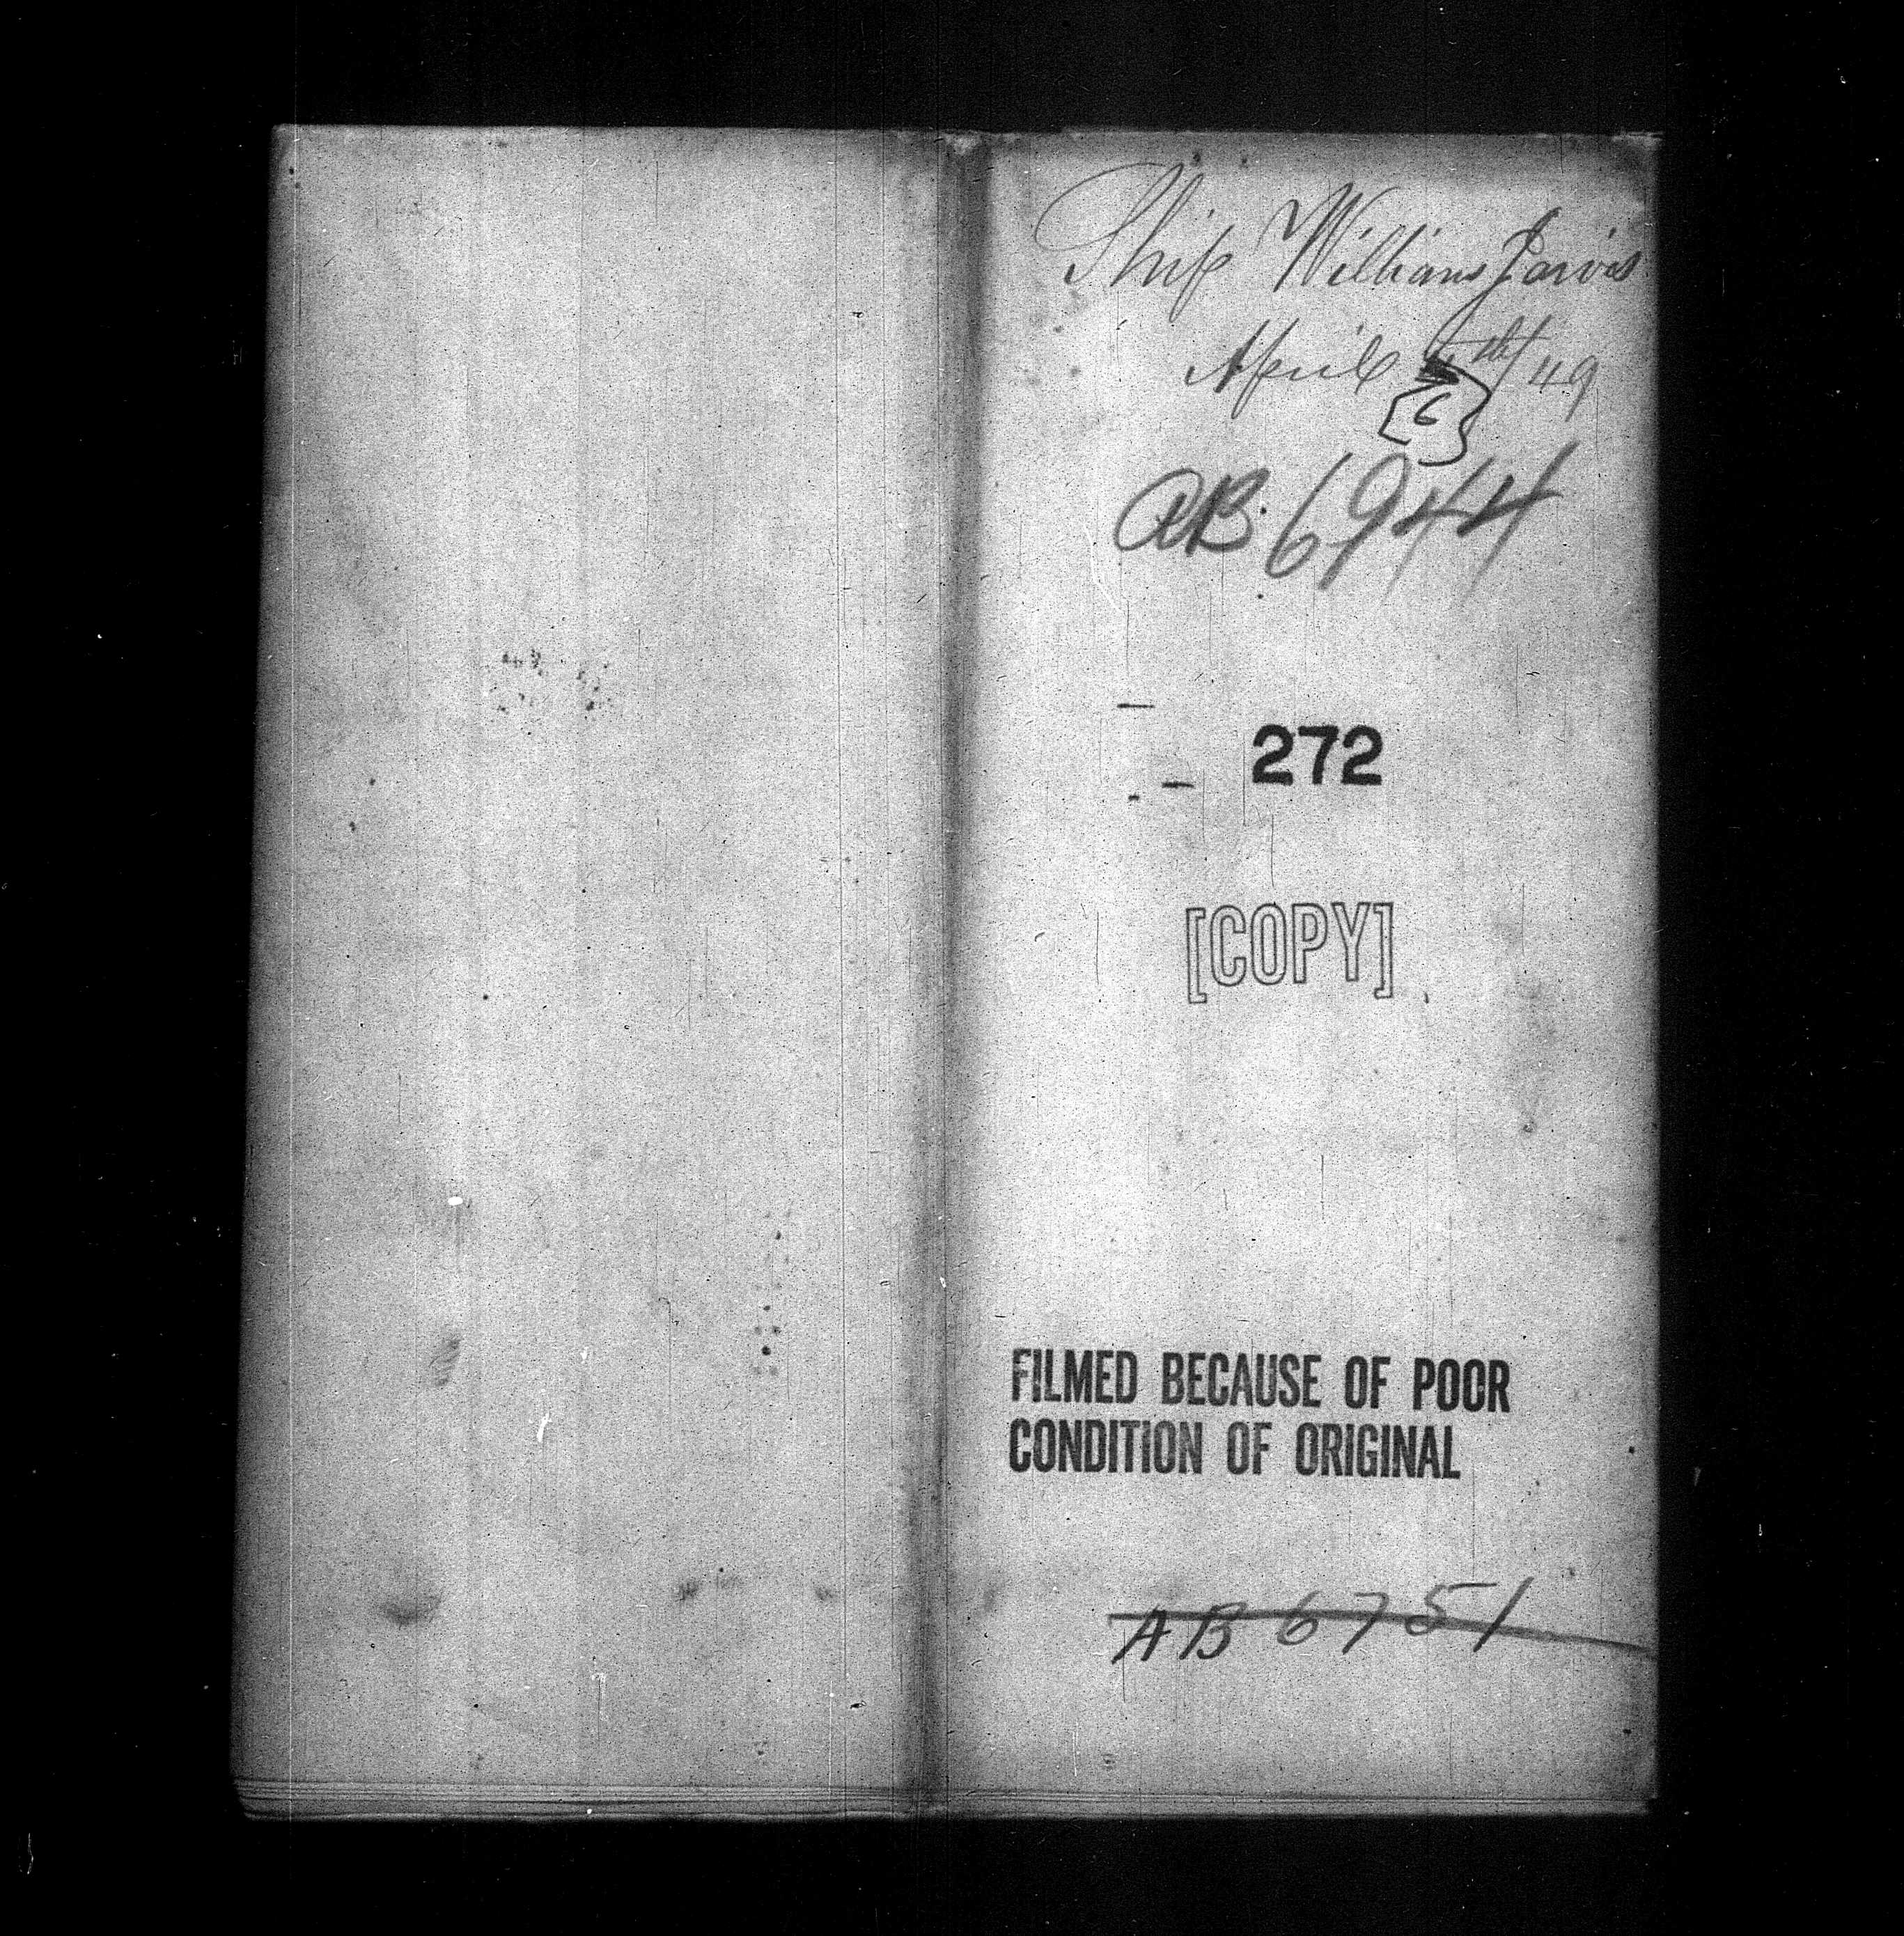 Ship William Jarvis
April 5th/49
[6]
AB 6944
272
[COPY]
FILMED BECAUSE OF POOR
CONDITION OF ORIGINAL
AB 6751